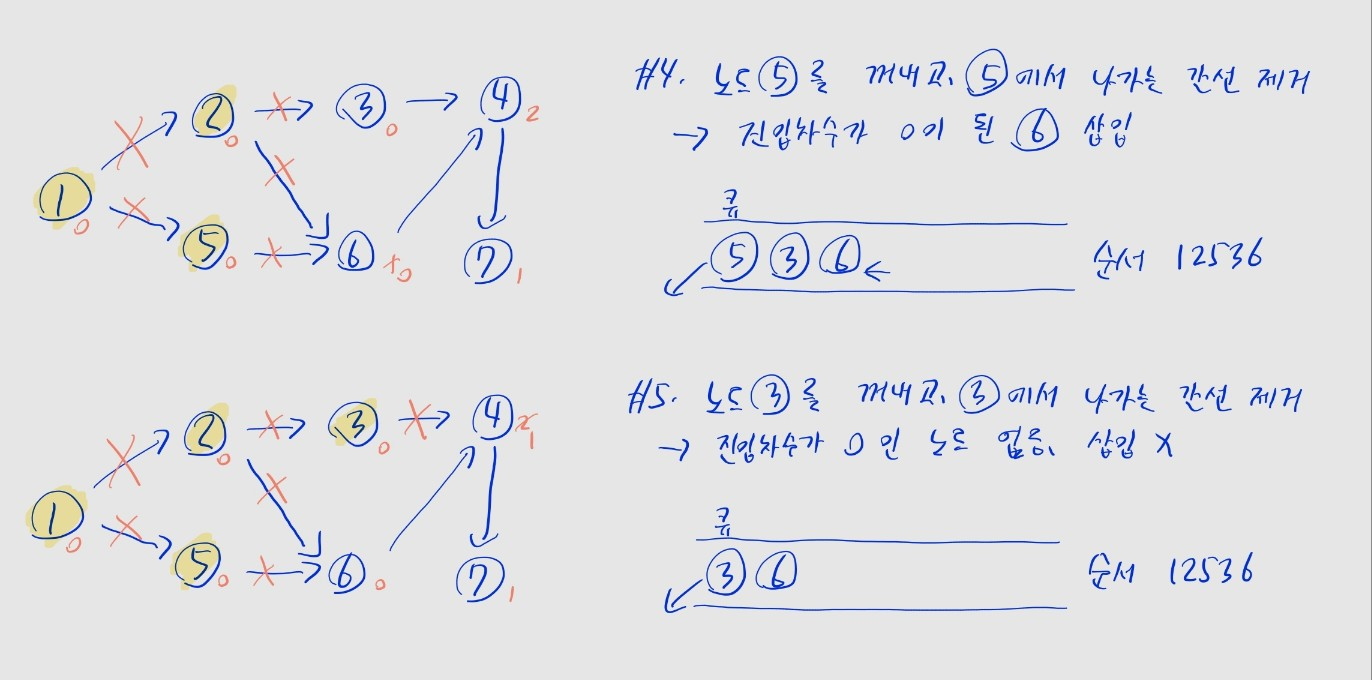 #4. 노드 ⑤를 꺼내고, ⑤에서 나가는 간선 제거
→ 진입차수가 0이 된 ⑥ 삽입
1 0
2 0
3 0
4 2
5 0
6 1 0
7 1
큐
5 3 6 ←
순서 12536
#5. 노드 ③를 꺼내고, ③에서 나가는 간선 제거
→ 진입차수가 0인 노드 없음, 삽입 X
1 0
2 0
3 0
4 2 1
5 0
6 0
7 1
큐
3 6
순서 12536